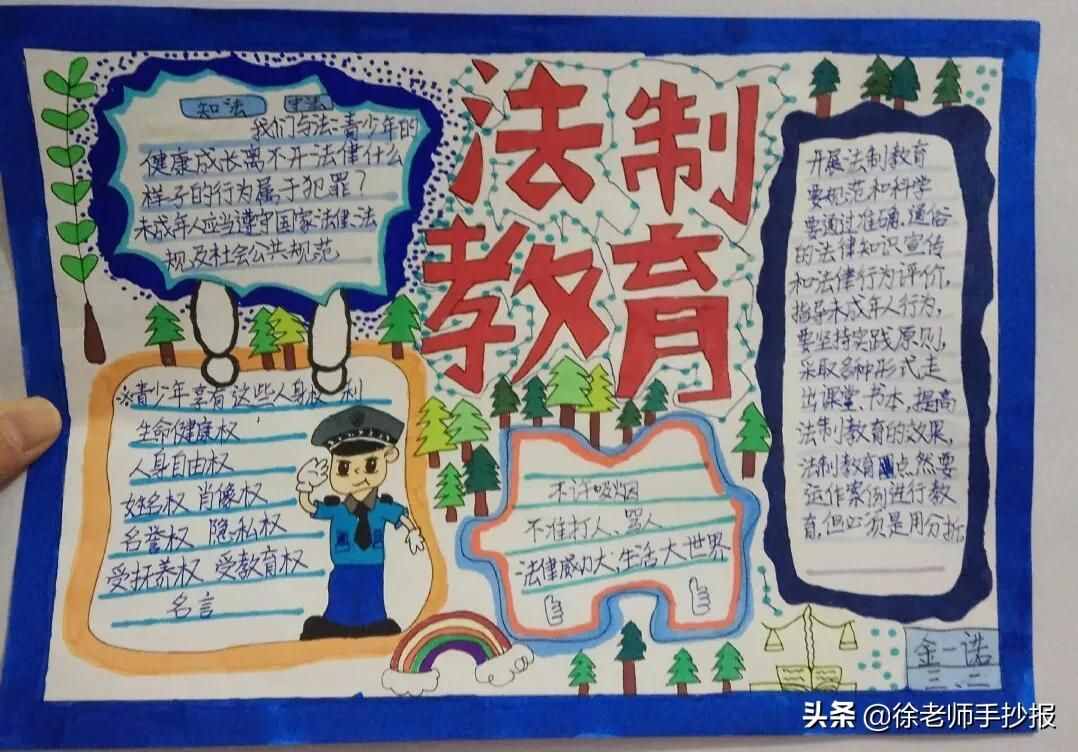 法制
教育
知法 守法
我们与法:青少年的
健康成长离不开法律什么
样子的行为属于犯罪?
未成年人应当遵守国家法律、法
规及社会公共规范
※青少年享有这些人身权利
生命健康权
人身自由权
姓名权 肖像权
名誉权 隐私权
受抚养权 受教育权
名言
不许吸烟
不准打人、骂人
法律威力大,生活大世界
开展法制教育
要规范和科学
要通过准确,通俗
的法律知识宣传
和法律行为评价,
指导未成年人行为,
要坚持实践原则,
采取多种形式走
出课堂、书本,提高
法制教育的效果,
法制教育点然要
运作案例进行教
育,但必须是用分析
金一诺
三、二
头条 @徐老师手抄报